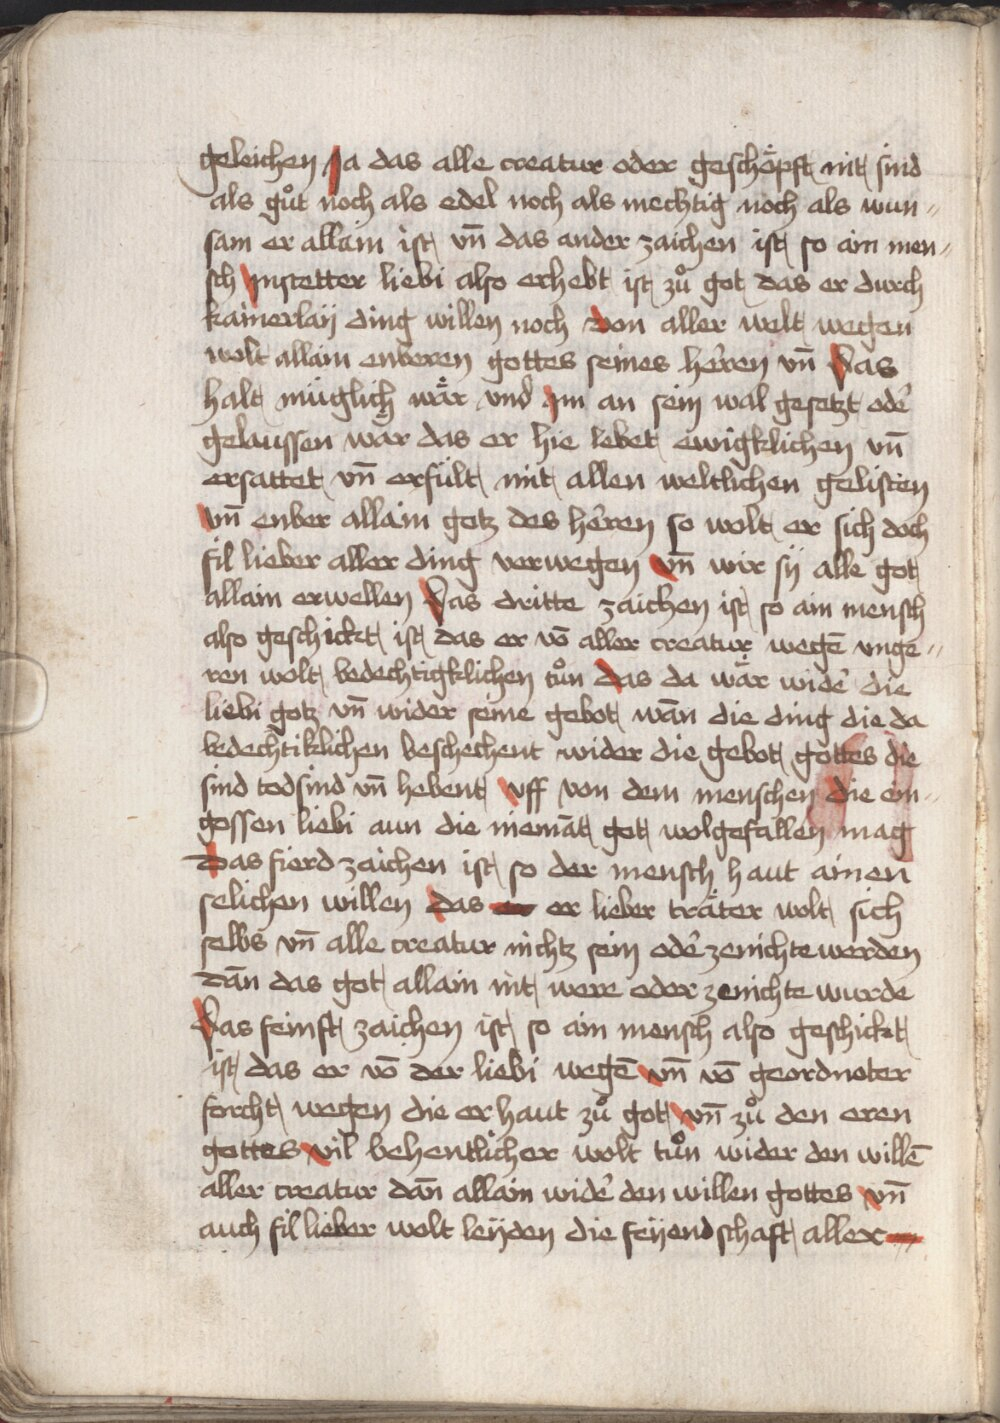 geleichen Ja das alle creatur oder geschöpft nit sind
als gůt noch als edel noch als mechtig noch als wun〃
sam er allain ist vn̄ das ander zaichen ist so ain men〃
sch Jnstetter liebi also erhebt ist zů got das er durch
kainerlaÿ ding willen noch von aller welt wegen
wolt allain enberen gottes seines herren vn̄ Das
halt müglich wär vnd Jm an sein wal gesetzt oder
gelaussen wär das er hie lebet ewigklichen vn̄
ersattet vn̄ erfült mit allen weltlichen gelisten
vn̄ enber allain gotz des herren so wolt er sich doch
fil lieber aller ding verwegen vn̄ wir sÿ alle got
allain erwellen Das dritte zaichen ist so ain mensch
also geschickt ist das er vō aller creatur wegē vnge〃
ren wolt bedechtigklichen tůn das da wär wider die
liebi gotz vn̄ wider seine gebot wān die ding die da
bedechtiklichen beschechent wider die gebot gottes die
sind todsind vn̄ hebent vff von dem menschen die ein〃
gossen liebi aun die niemāt got wolgefallen mag
Das fierd zaichen ist so der mensch haut ainen
selichen willen das er er lieber träter wolt sich
selbs vn̄ alle creatur nichtz sein oder zenichte werden
dān das got allain nit were oder zenichte wurde
Das feinft zaichen ist so ain mensch also geschickt
ist das er vō der liebi wegē vn̄ vō geordnoter
forcht wegen die er haut zů got vn̄ zů den eren
gottes vil behentlicher wolt tůn wider den willē
aller creatur dān allain wider den willen gottes vn̄
auch fil lieber wolt leÿden die feÿendschaft aller